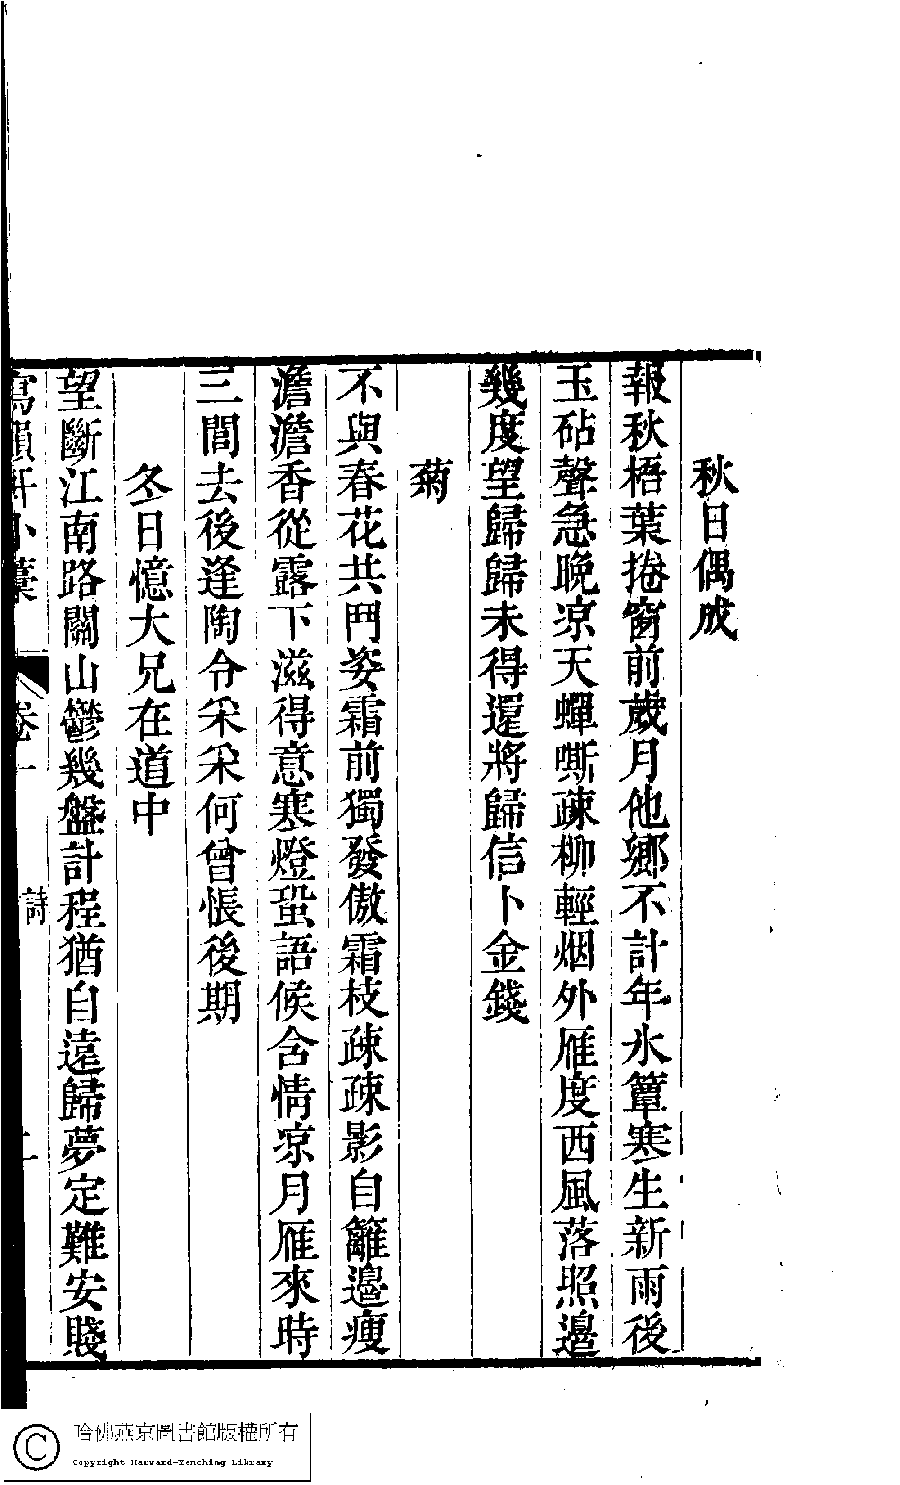 秋日偶成
報秋梧葉捲窗前歲月他鄉不計年氷簟寒生新雨後
玉砧聲急晚凉天蟬嘶疎柳輕烟外雁度西風落照邉
幾度望歸歸未得還將歸信卜金錢
菊
不與春花共鬥姿霜前獨發傲霜枝疎疎影自籬邉瘦
澹澹香從露下滋得意寒燈蛩語候含情凉月雁來時
三閭去後逢陶令采采何曾悵後期
冬日憶大兄在道中
望斷江南路關山鬱幾盤計程猶自遠歸夢定難安賤
寫韻軒小藁
卷一
詩
二
哈佛燕京圖書館版權所有
Copyright Harvard-Yenching Library